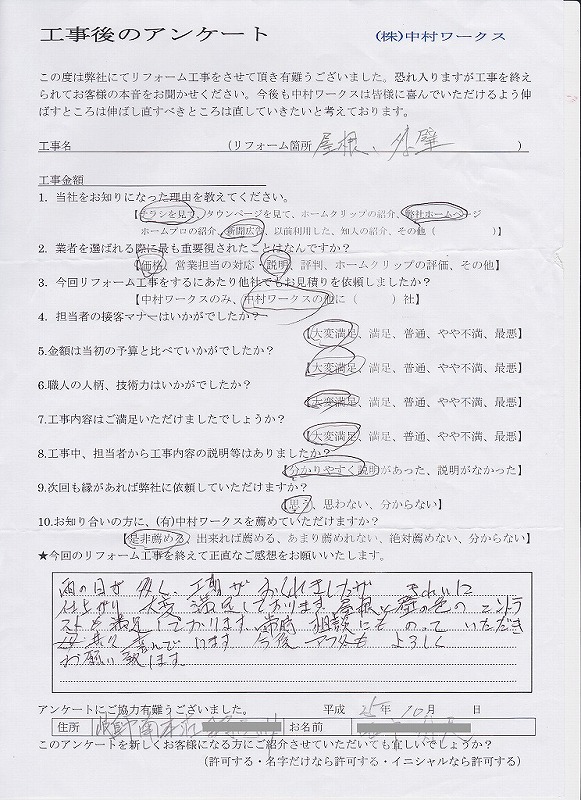 工事後のアンケート (株)中村ワークス
この度は弊社にてリフォーム工事をさせて頂き有難うございました。恐れ入りますが工事を終え
られてお客様の本音をお聞かせください。今後も中村ワークスは皆様に喜んでいただけるよう伸
ばすところは伸ばし直すべきところは直していきたいと考えております。
工事名 (リフォーム箇所 屋根、外壁 )
工事金額
1. 当社をお知りになった理由を教えてください。
【チラシを見て、タウンページを見て、ホームクリップの紹介、弊社ホームページ
ホームプロの紹介、新聞広告、以前利用した、知人の紹介、その他( )】
2. 業者を選ばれる際に最も重要視されたことはなんですか？
【価格、営業担当の対応・説明、評判、ホームクリップの評価、その他】
3. 今回リフォーム工事をするにあたり他社でもお見積りを依頼しましたか？
【中村ワークスのみ、中村ワークスの他に( )社】
4. 担当者の接客マナーはいかがでしたか？
【大変満足、満足、普通、やや不満、最悪】
5.金額は当初の予算と比べていかがでしたか？
【大変満足、満足、普通、やや不満、最悪】
6.職人の人柄、技術力はいかがでしたか？
【大変満足、満足、普通、やや不満、最悪】
7.工事内容はご満足いただけましたでしょうか？
【大変満足、満足、普通、やや不満、最悪】
8.工事中、担当者から工事内容の説明等はありましたか？
【分かりやすく説明があった、説明がなかった】
9.次回も縁があれば弊社に依頼していただけますか？
【思う、思わない、分からない】
10.お知り合いの方に、(有)中村ワークスを薦めていただけますか？
【是非薦める、出来れば薦める、あまり薦められない、絶対薦めない、分からない】
★今回のリフォーム工事を終えて正直なご感想をお願いいたします。
雨の日が多く、工期がおくれましたが きれいに
仕上がり 大変 満足しております。屋根と壁の色の コントラ
ストも満足しております。常時 相談にも のって いただき
喜んで 今後 アフターも よろしく
お願い致します。
アンケートにご協力有難うございました。 平成 25年 10月 日
住所 お名前
このアンケートを新しくお客様になる方にご紹介させていただいても宜しいでしょうか？
(許可する・名字だけなら許可する・イニシャルなら許可する)